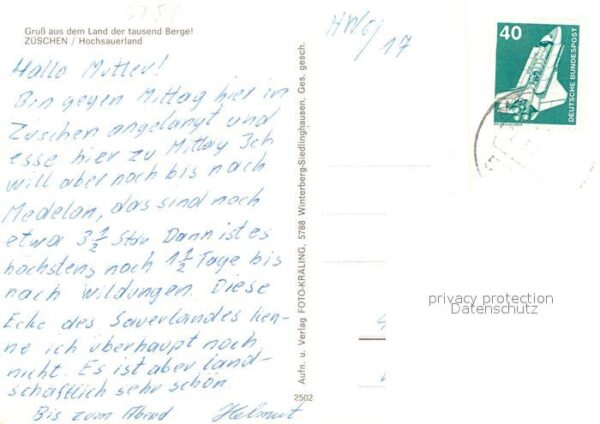 Gruß aus dem Land der tausend Berge!
ZÜSCHEN / Hochsauerland
Hallo Mutter!
Bin gegen Mittag hier in
Züschen angelangt und
esse hier zu Mittag Ich
will aber noch bis nach
Medelon, das sind noch
etwa 3 1/2 Std. Dann ist es
höchstens noch 1 1/2 Tage bis
nach Wildungen. Diese
Ecke des Sauerlandes ken-
ne ich überhaupt noch
nicht. Es ist aber land-
schaftlich sehr schön.
Bis zum Abend Helmut
Aufn. u. Verlag FOTO-KRÄLING, 5788 Winterberg-Siedlinghausen, Ges. gesch.
2502
17
40
DEUTSCHE BUNDESPOST
privacy protection
Datenschutz